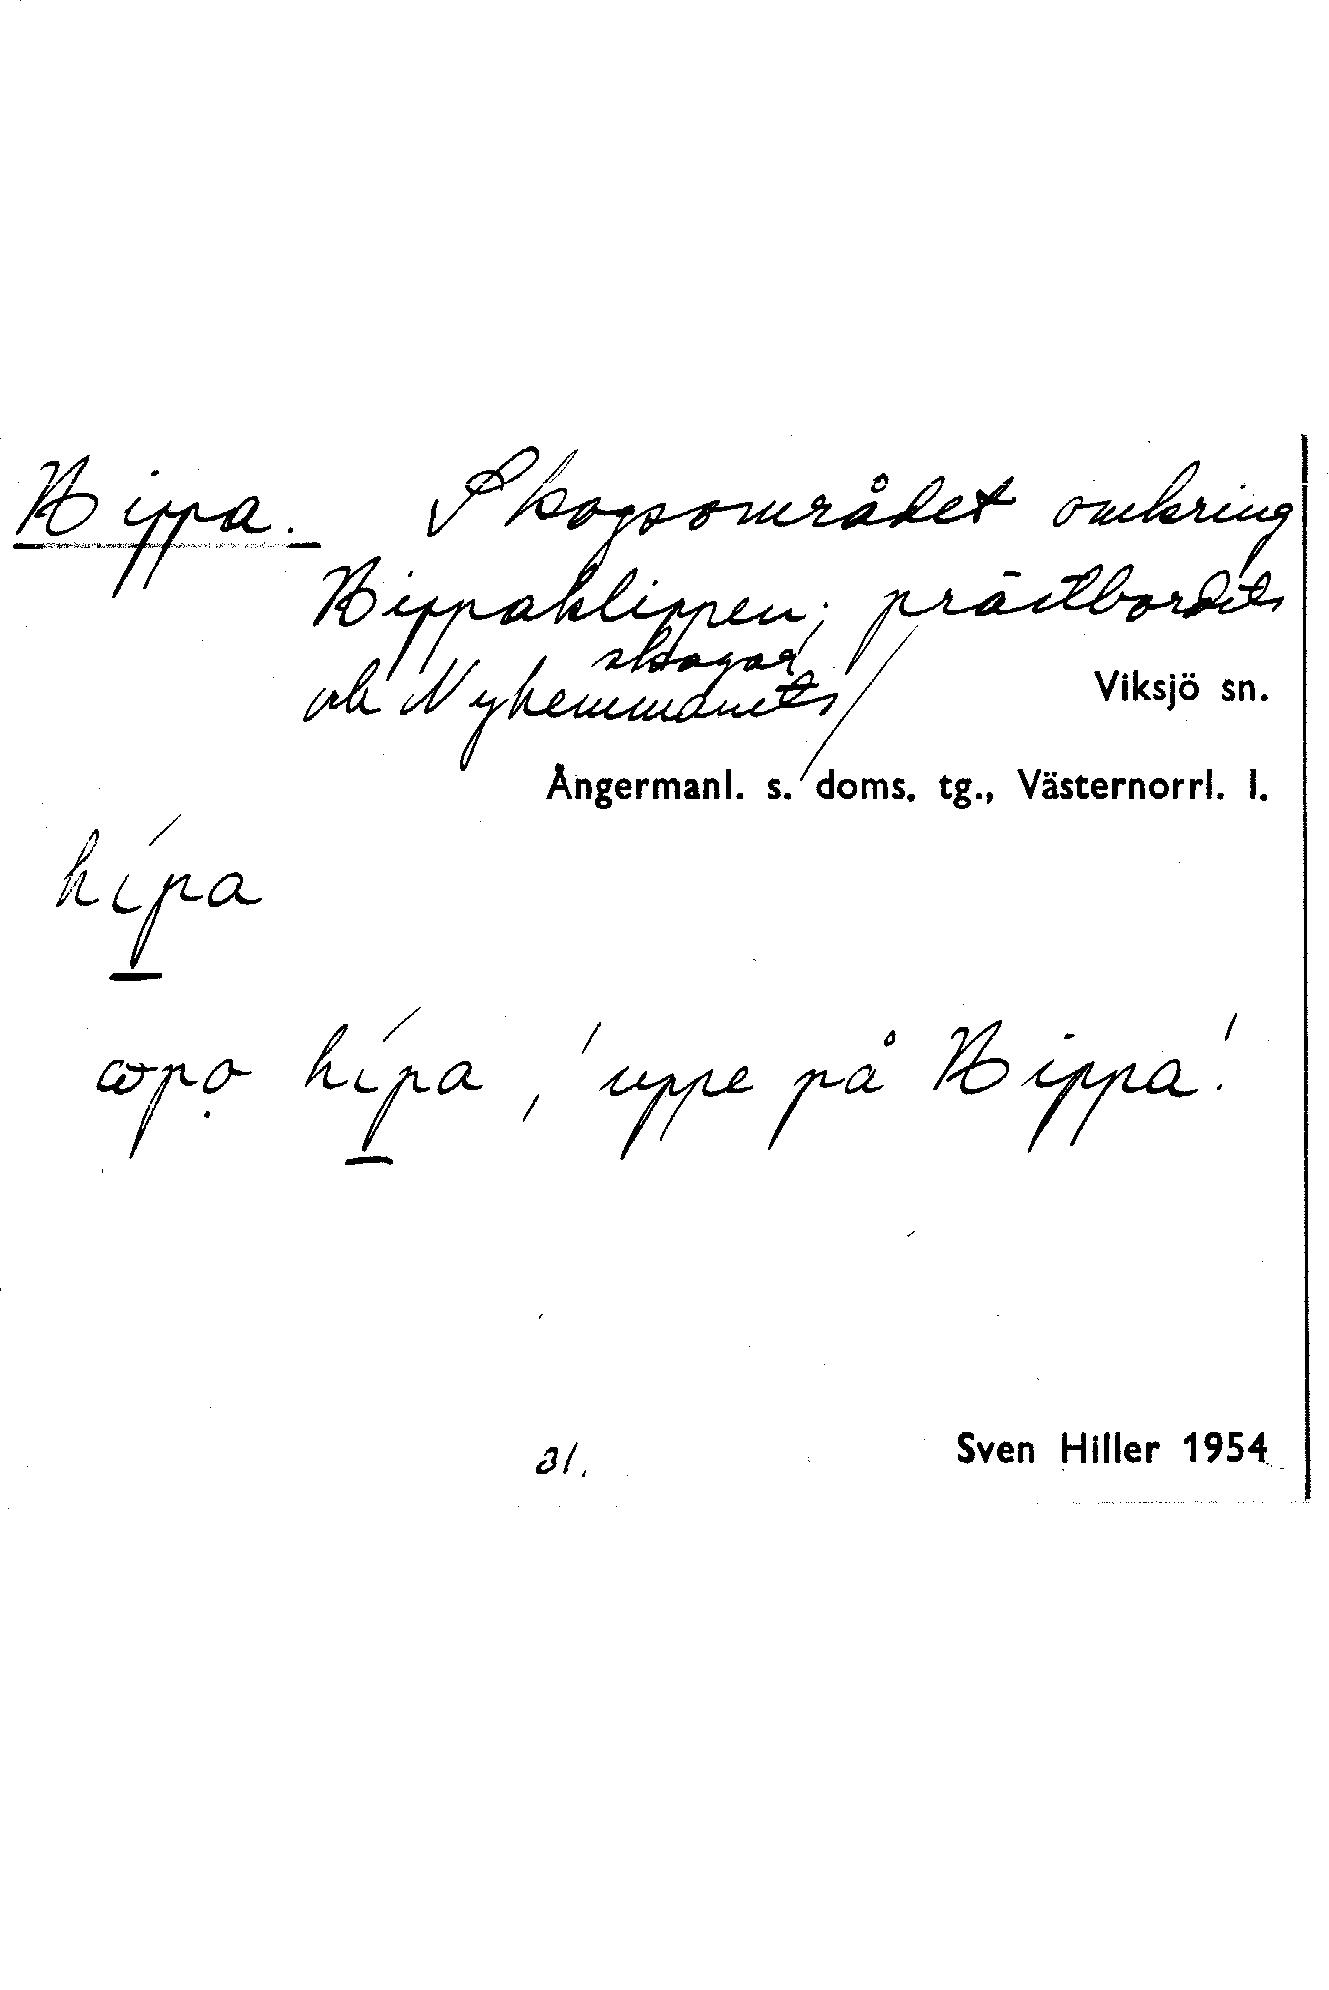 Hippa. Skogsområdet omkring
Hippaklippen; prästbordets
och Nyhemmanets skogar
Viksjö sn.
Ångermanl. s. doms. tg., Västernorrl. l.
hípa
ωpọ hípa, 'uppe på Hippa'.
Sven Hiller 1954